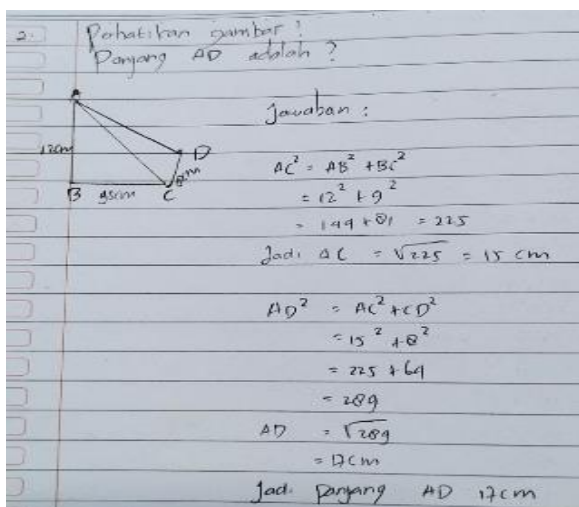 2. Perhatikan gambar!
Panjang AD adalah?
Jawaban :
A
12cm
D
8cm
B 9cm C
AC² = AB² + BC²
= 12² + 9²
= 144 + 81 = 225
Jadi AC = √225 = 15 cm
AD² = AC² + CD²
= 15² + 8²
= 225 + 64
= 289
AD = √289
= 17cm
Jadi panjang AD 17cm